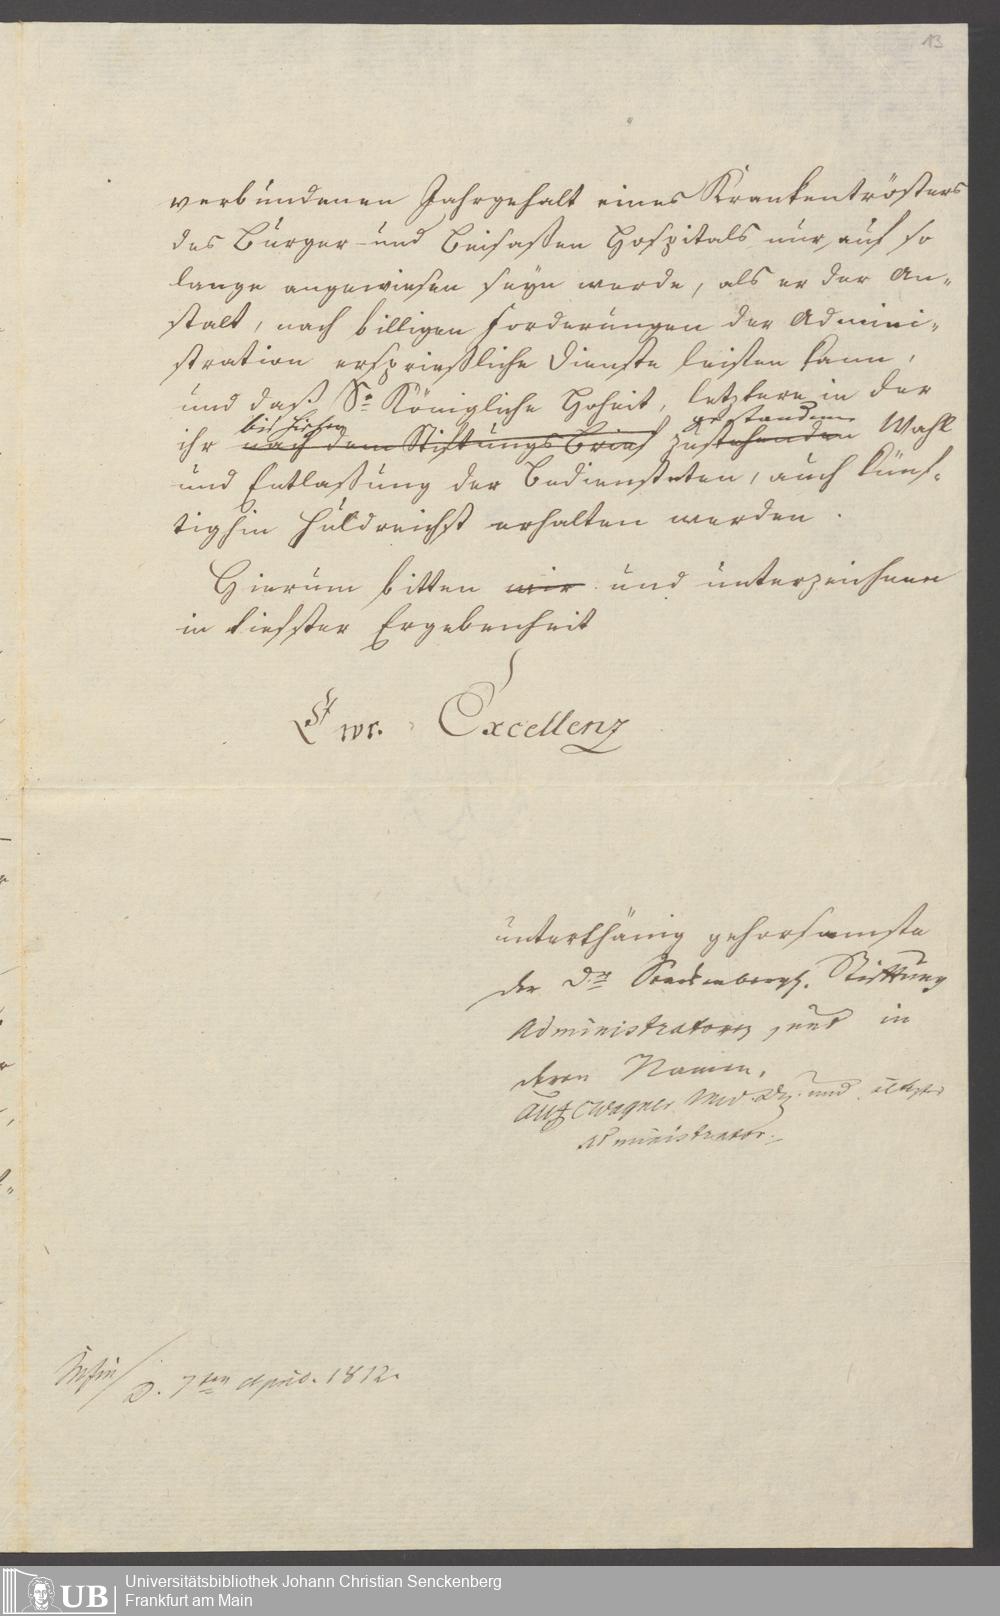 13
verbundenen Jahrgehalt eines Krankentrösters
des Bürger- und Beisaßen Hospitals nur auf so
lange angewiesen seyn werde, als er der An-
stalt, nach billigen Forderungen der Admini-
stration ersprießliche Dienste leisten kann,
und daß Se Königliche Hoheit, letztere in der
bisher gestandenen
ihr nach dem Stiftungs Brief zustehenden Wahl
und Entlaßung der Bediensteten, auch künf-
tighin huldreichst erhalten werden.
Hierum bitten wir und unterzeichnen
in tiefster Ergebenheit
Ewr. Excellenz
unterthänig gehorsamste
der Dr Senckenbergs. Stiftung
Administratoren, und in
deren Namen,
Wagner Med. und
Administrator.
d. 7ten April. 1812.
UB
Universitätsbibliothek Johann Christian Senckenberg
Frankfurt am Main